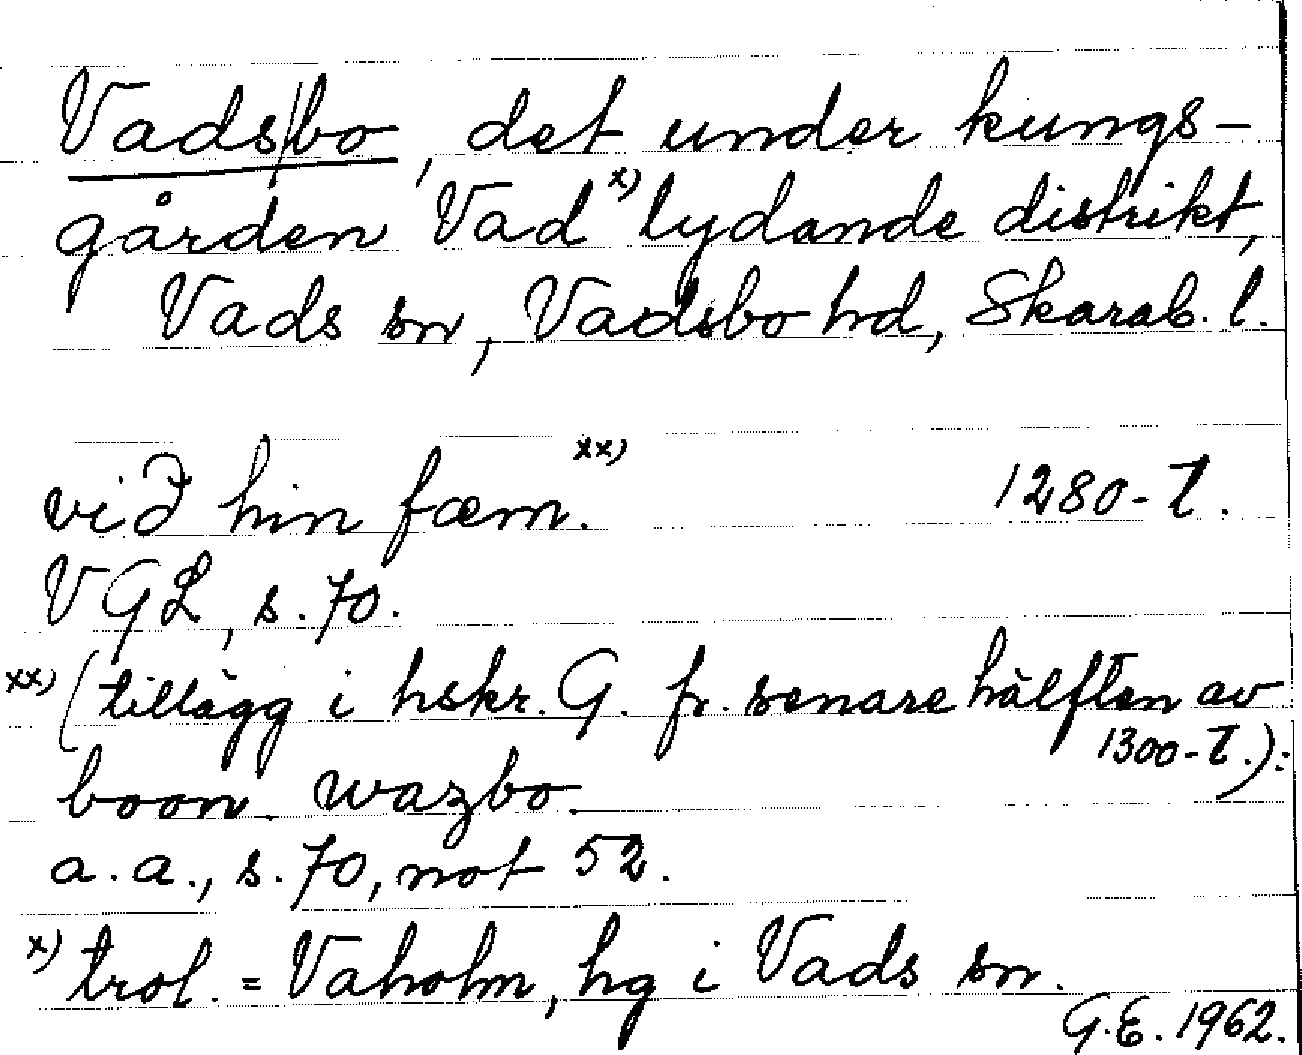 Vads/bo, det under kungs-
gården Vad x) lydande distrikt,
Vads sn, Vadsbo hd, Skarab. l.
við hin fæm. xx) 1280-t.
VGL, s. 70.
xx) (tillägg i hskr. G. fr. senare hälften av
1300-t.):
boon wazbo.
a.a., s. 70, not 52.
x) trol. = Vaholm, hg i Vads sn.
G.E. 1962.